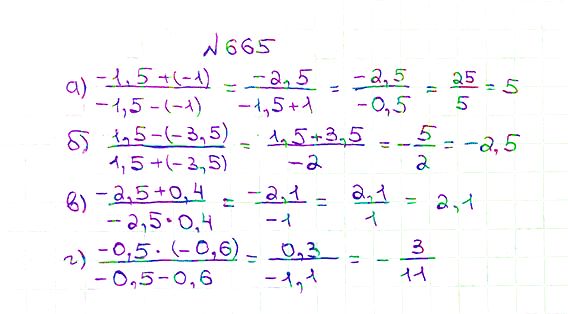 №665
а) (-1,5+(-1))/(-1,5-(-1)) = (-2,5)/(-1,5+1) = (-2,5)/(-0,5) = 25/5 = 5
б) (1,5-(-3,5))/(1,5+(-3,5)) = (1,5+3,5)/(-2) = -5/2 = -2,5
в) (-2,5+0,4)/(-2,5·0,4) = (-2,1)/(-1) = 2,1/1 = 2,1
г) (-0,5·(-0,6))/(-0,5-0,6) = 0,3/(-1,1) = -3/11